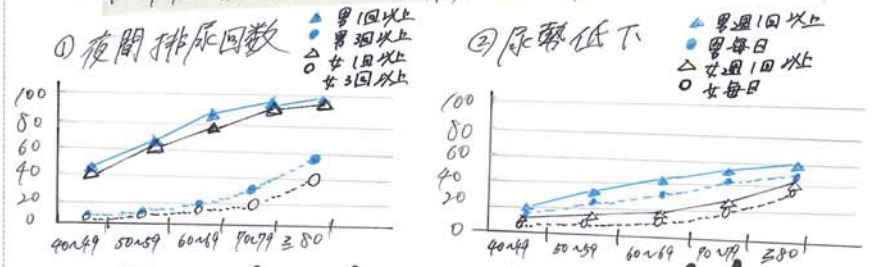 ① 夜間排尿回数
男1回以上
男3回以上
女1回以上
女3回以上
100
80
60
40
20
0
40~49 50~59 60~69 70~79 ≧80
② 尿勢低下
男週1回以上
男毎日
女週1回以上
女毎日
100
80
60
40
20
0
40~49 50~59 60~69 70~79 ≧80